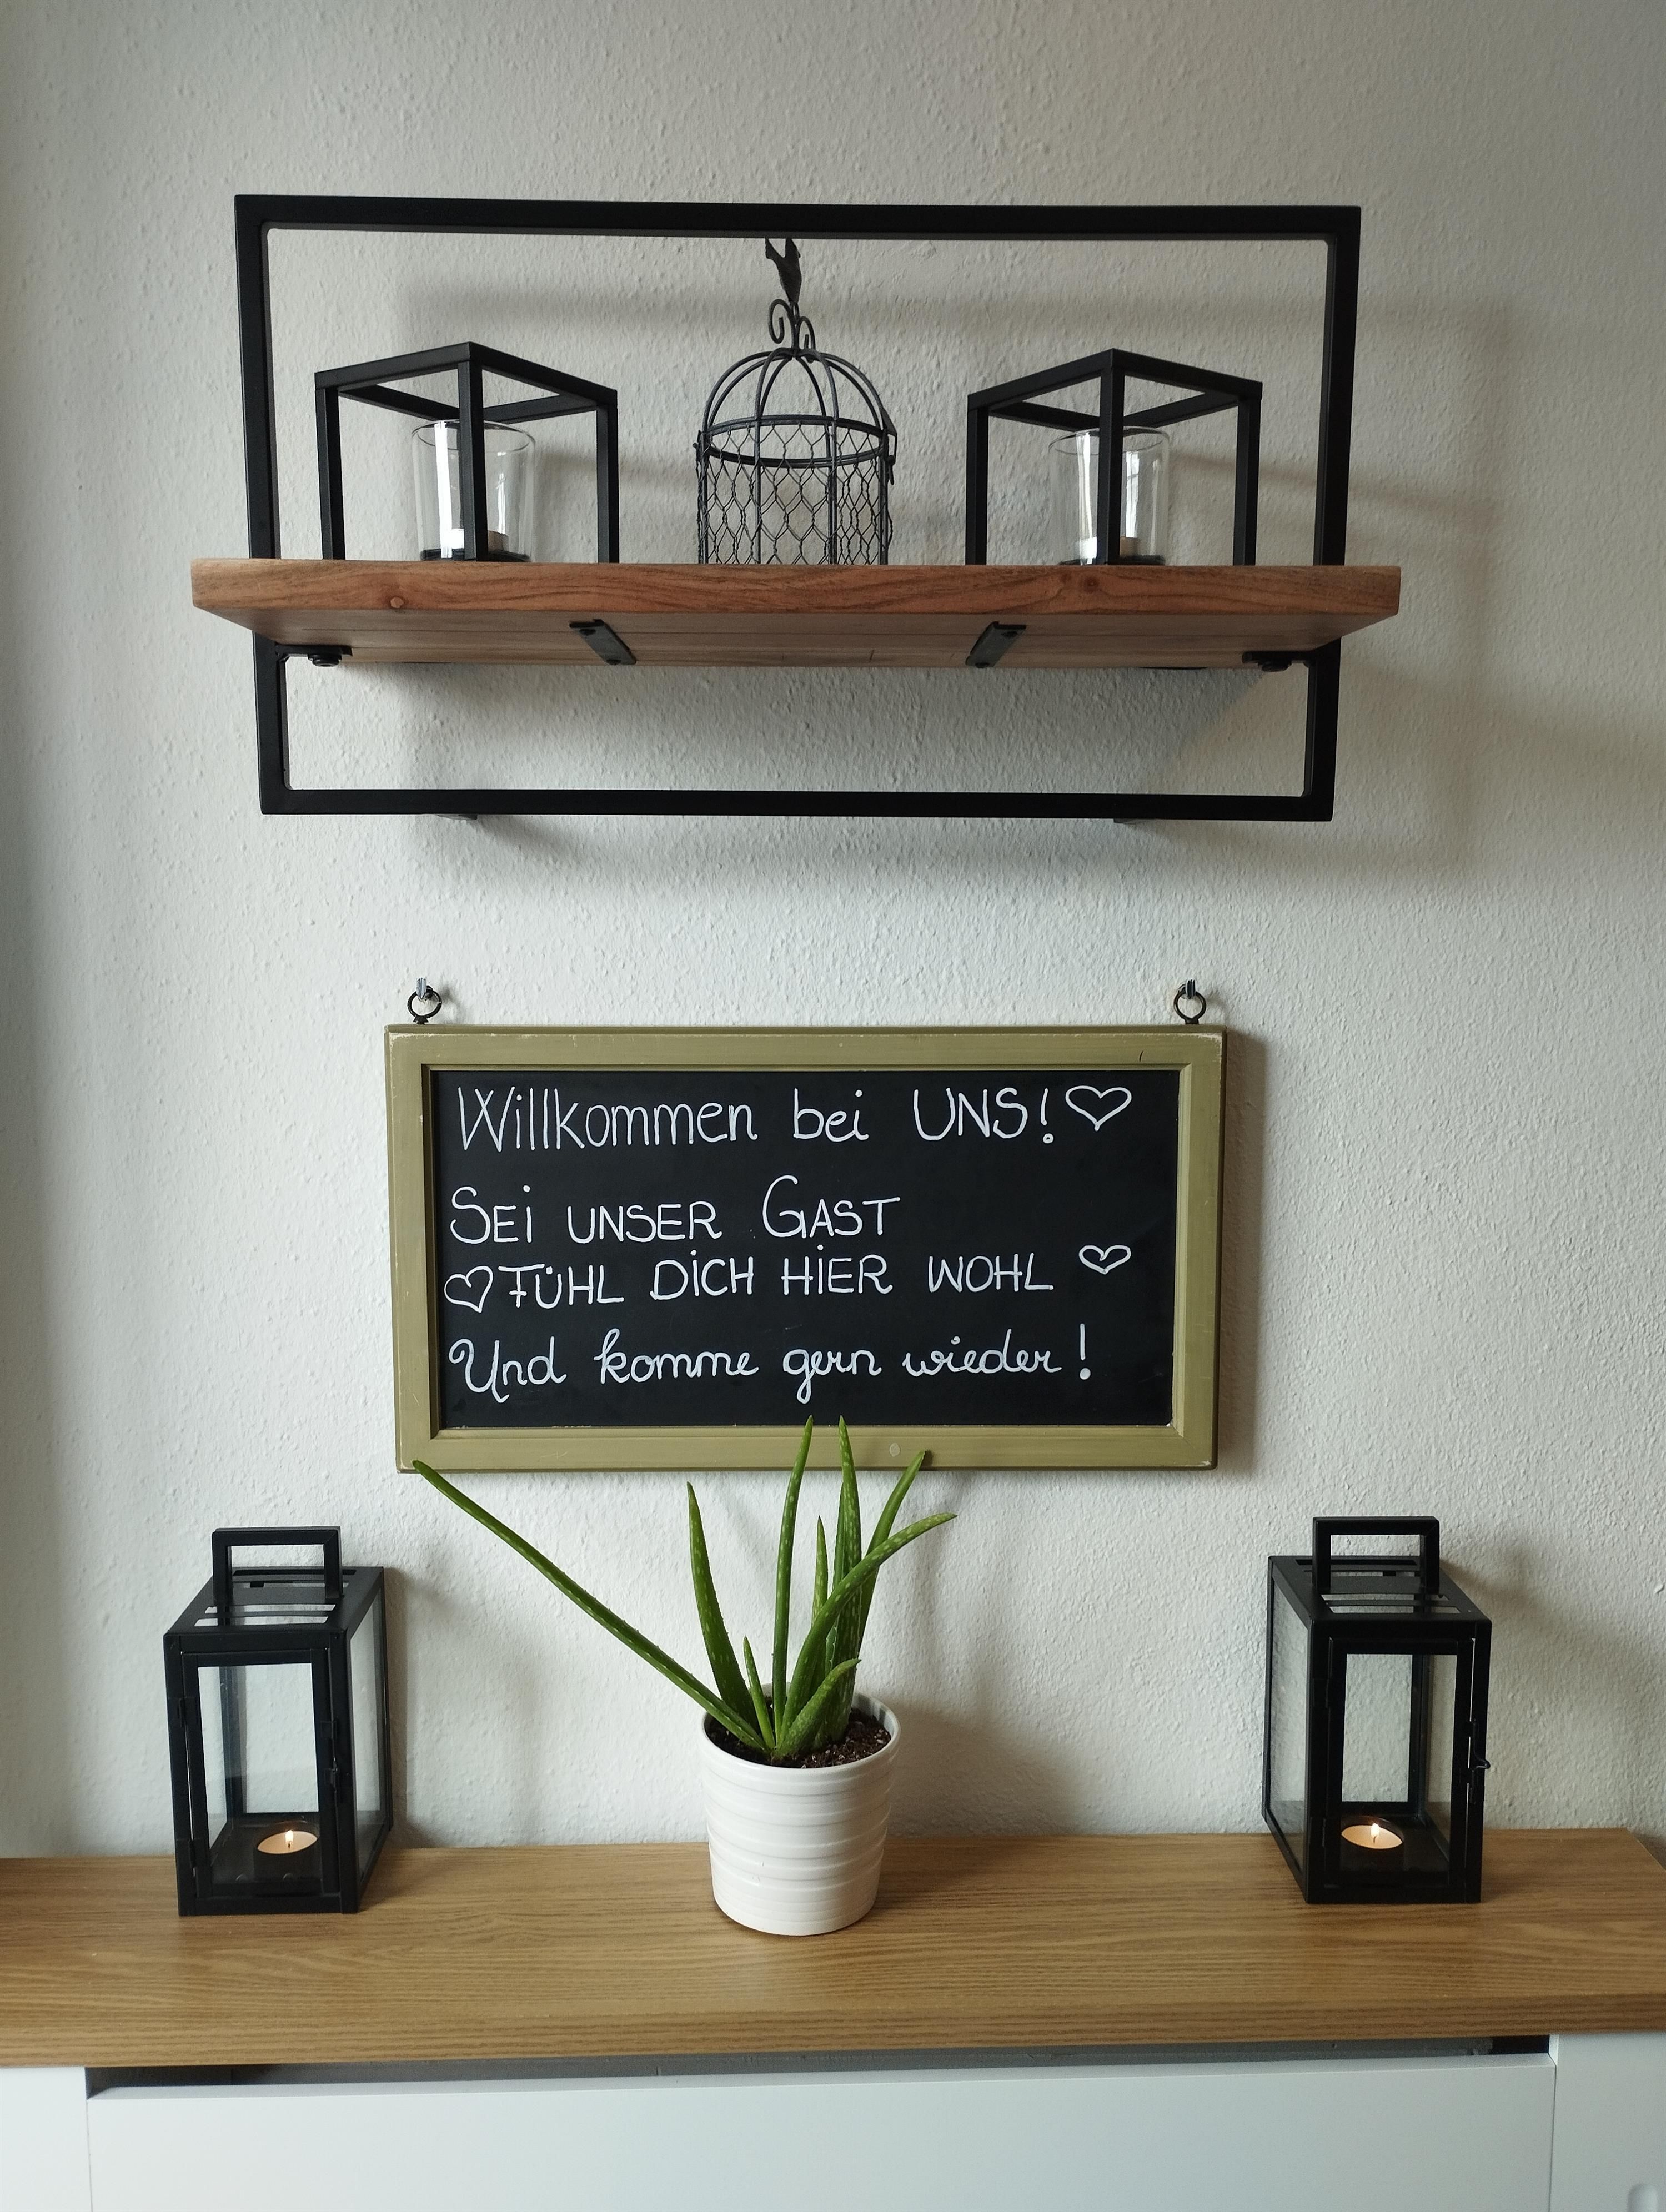 Willkommen bei UNS! ♡
SEi UNSER GAST
♡ FÜHL DiCH HiER WOHL ♡
Und komme gern wieder!